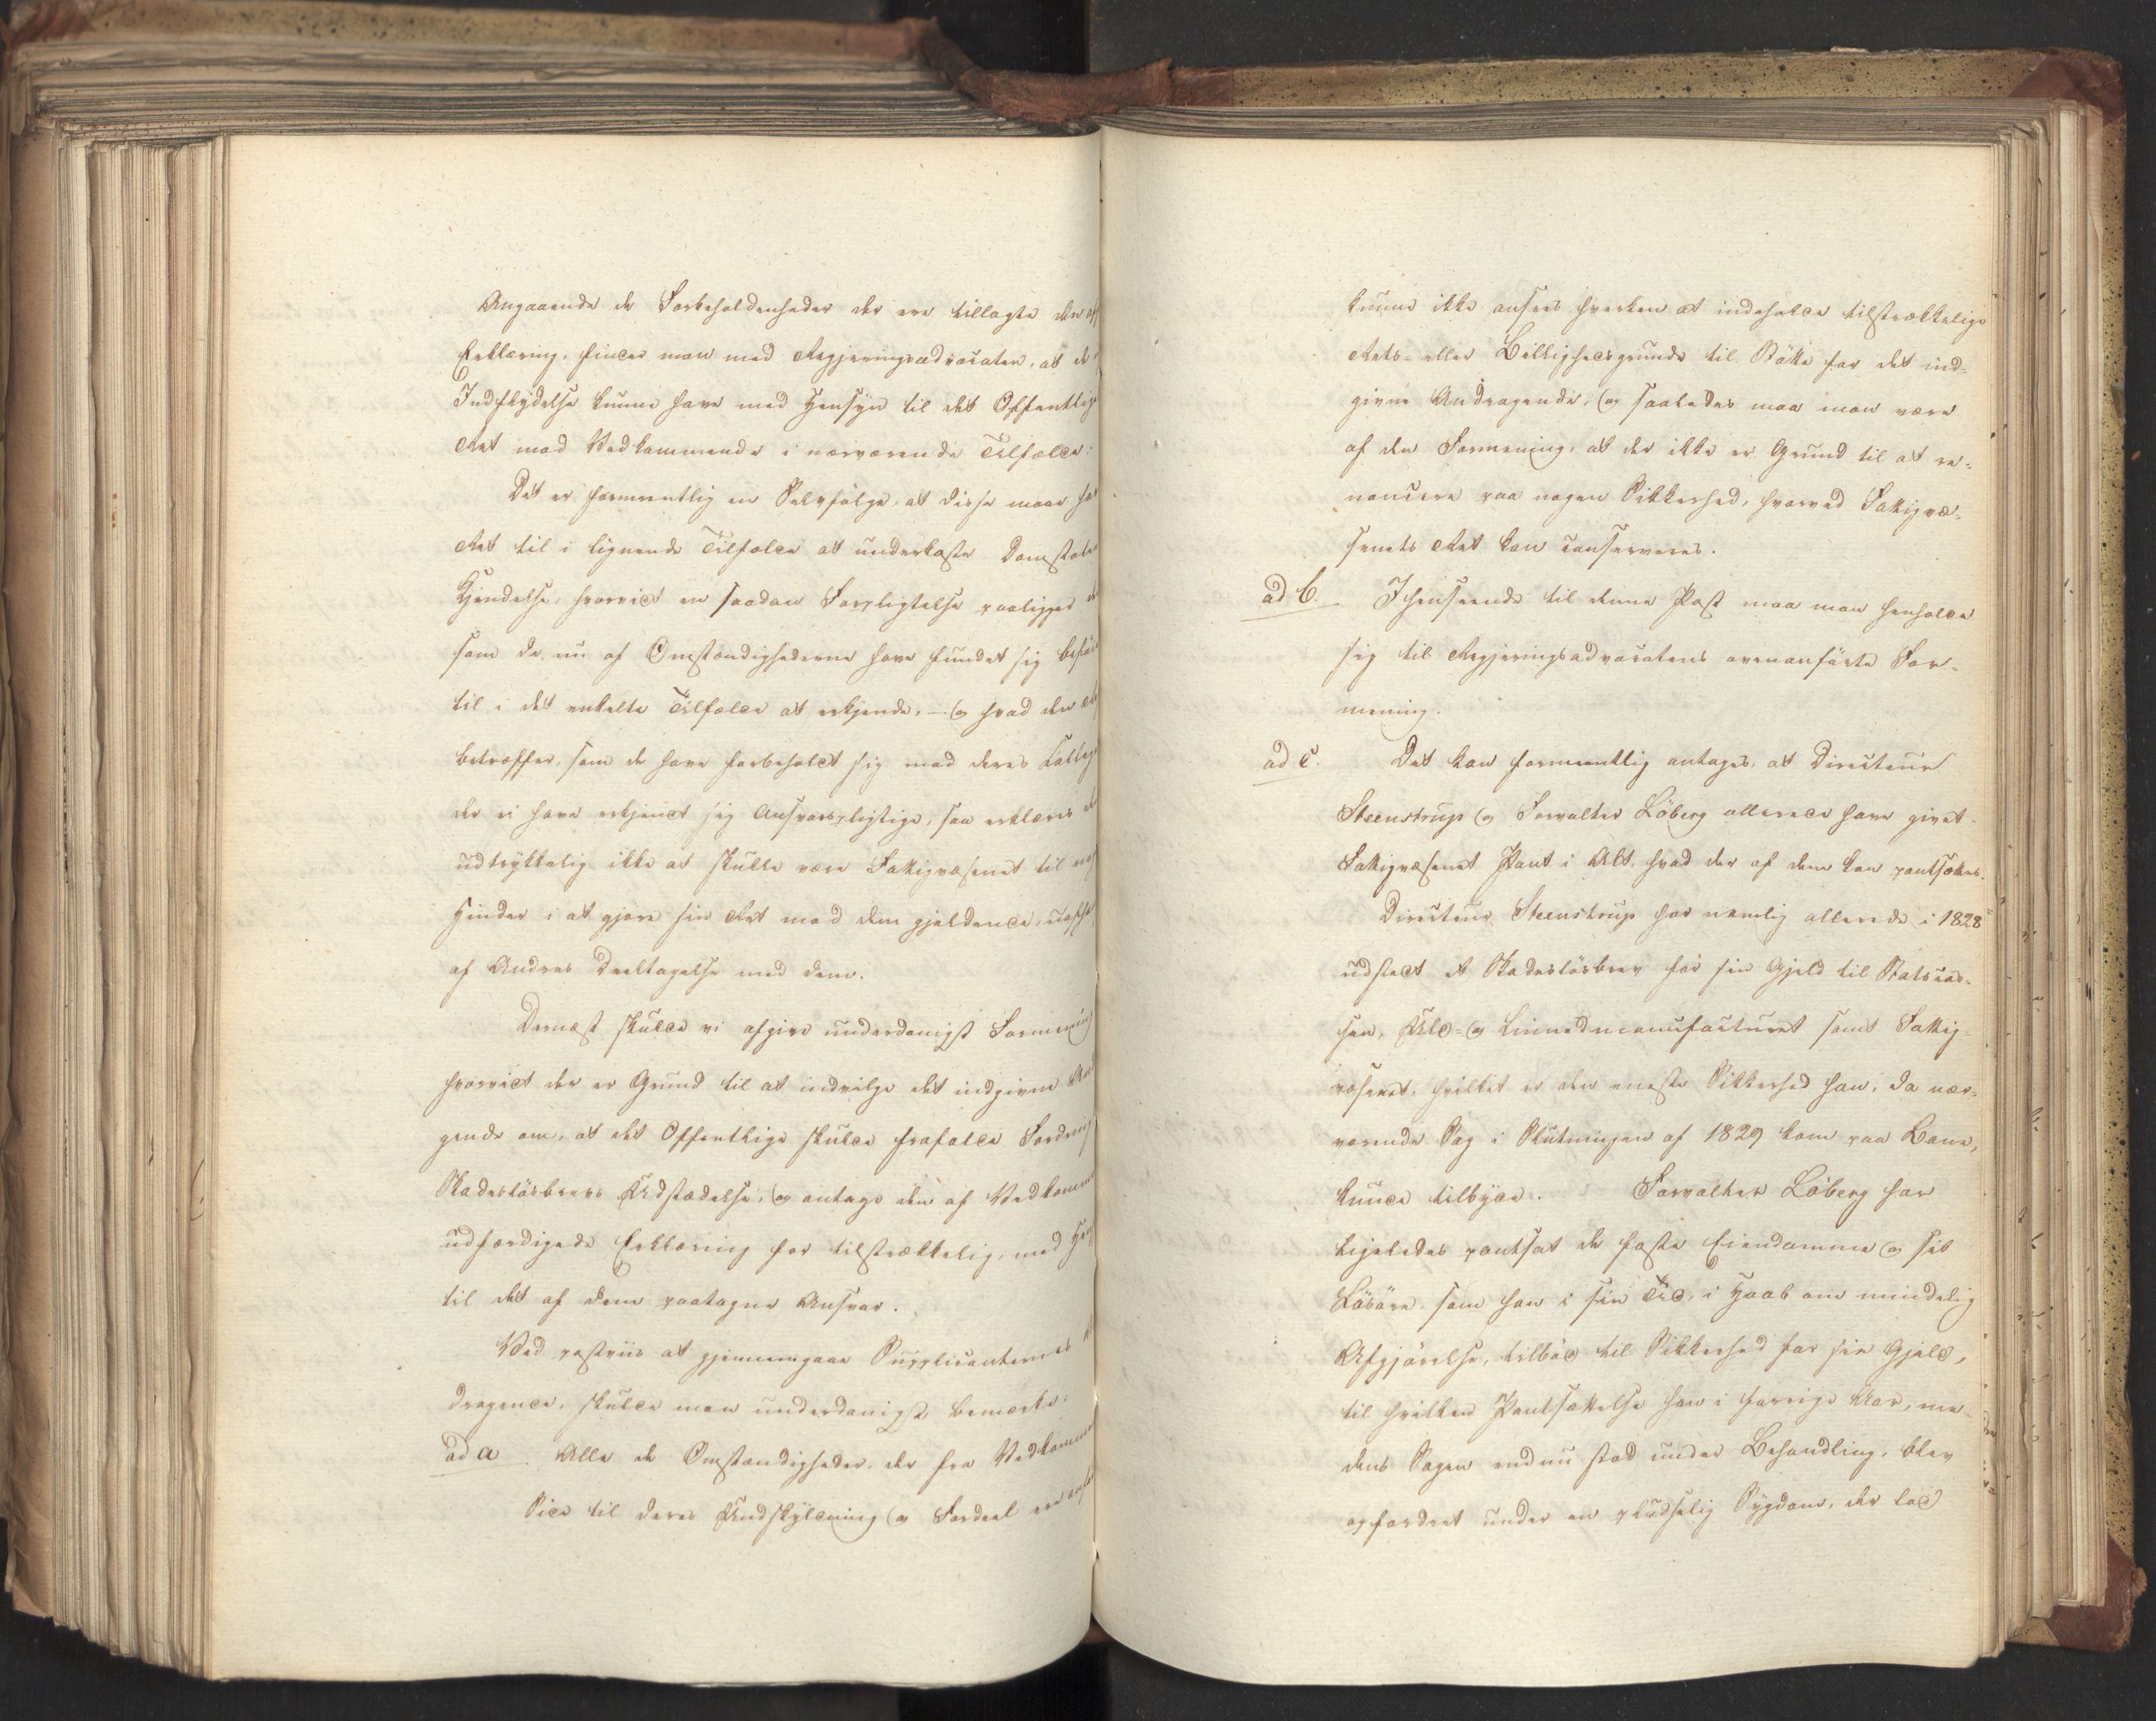 Angaaende de Forbeholdenheder der ere tillagte den
Erklæring, finder man med Regjeringsadvocaten, at de
Indflydelse kunne have med Hensyn til det Offentlig
Ret mod Vedkommende i nærværende Tilfælde:
Det er formeentlig en Selvfølge, at disse maae ha
Ret til i lignende Tilfælde at underkaste Domstole
Kjendelse, hvorvidt en saadan Forpligtelse paaligger
som de nu af Omstændighederne have fundet sig beføi
til i det enkelte Tilfælde at erkjende, - og hvad den
betræffer, som de have forbeholdt sig mod deres Colleg
der ei have erkjendt sig Ansvarspligtige, saa erklæres
udtrykkelig ikke at skulle være Fattigvæsenet til
Hinder i at gjøre sin Ret mod dem gjeldende, uafh
af Andres Deeltagelse med dem.
Dernæst skulde vi afgive underdanigst Formening
hvorvidt der er Grund til at indvilge det indgivne And
gende om, at det Offentlige skulde frafalde Fordring
Skadesløsbrevs Udstædelse, og antage den af Vedkomm
udfærdigede Erklæring for tilstrækkelig, med Hen
til det af dem paatagne Ansvar.
Ved postviis at gjennemgaae Supplicanternes
dragende, skulde man underdanigst bemærke:
ad a Alle de Omstændigheder, der fra Vedkomm
Side til deres Undskyldning og Fordeel ere anfø
kunne ikke ansees hverken at indeholde tilstrækkelige
Rets- eller Billighedsgrunde til Støtte for det ind-
givne Andragende, og saaledes maa man være
af den Formening, at der ikke er Grund til at re-
noncere paa nogen Sikkerhed, hvorved Fattigvæ-
senets Ret kan conserveres.
ad b. Ihenseende til denne Post maa man henholde
sig til Regjeringsadvocatens ovenanførte For-
mening.
ad c. Det kan formeentlig antages, at Directeur
Steenstrup og Forvalter Löberg allerede have givet
Fattigvæsenet Pant i Alt, hvad der af dem kan pantsættes.
Directeur Steenstrup har nemlig allerede i 1828
udstedt et Skadesløsbrev for sin Gjeld til Statscas-
sen, Uld- og Linnedmanufacturet samt Fattig-
væsenet, hvilket er den eneste Sikkerhed han, da nær-
værende Sag i Slutningen af 1829 kom paa Bane,
kunde tilbyde. Forvalter Löberg har
ligeledes pantsat de faste Eiendomme og sit
Løsøre, som han i sin Tid, i Haab om mindelig
Afgjørelse, tilbød til Sikkerhed for sin Gjeld,
til hvilken Pantsættelse han i forrige Aar, me-
dens Sagen endnu stod under Behandling, blev
opfordret under en pludselig Sygdom, der lod